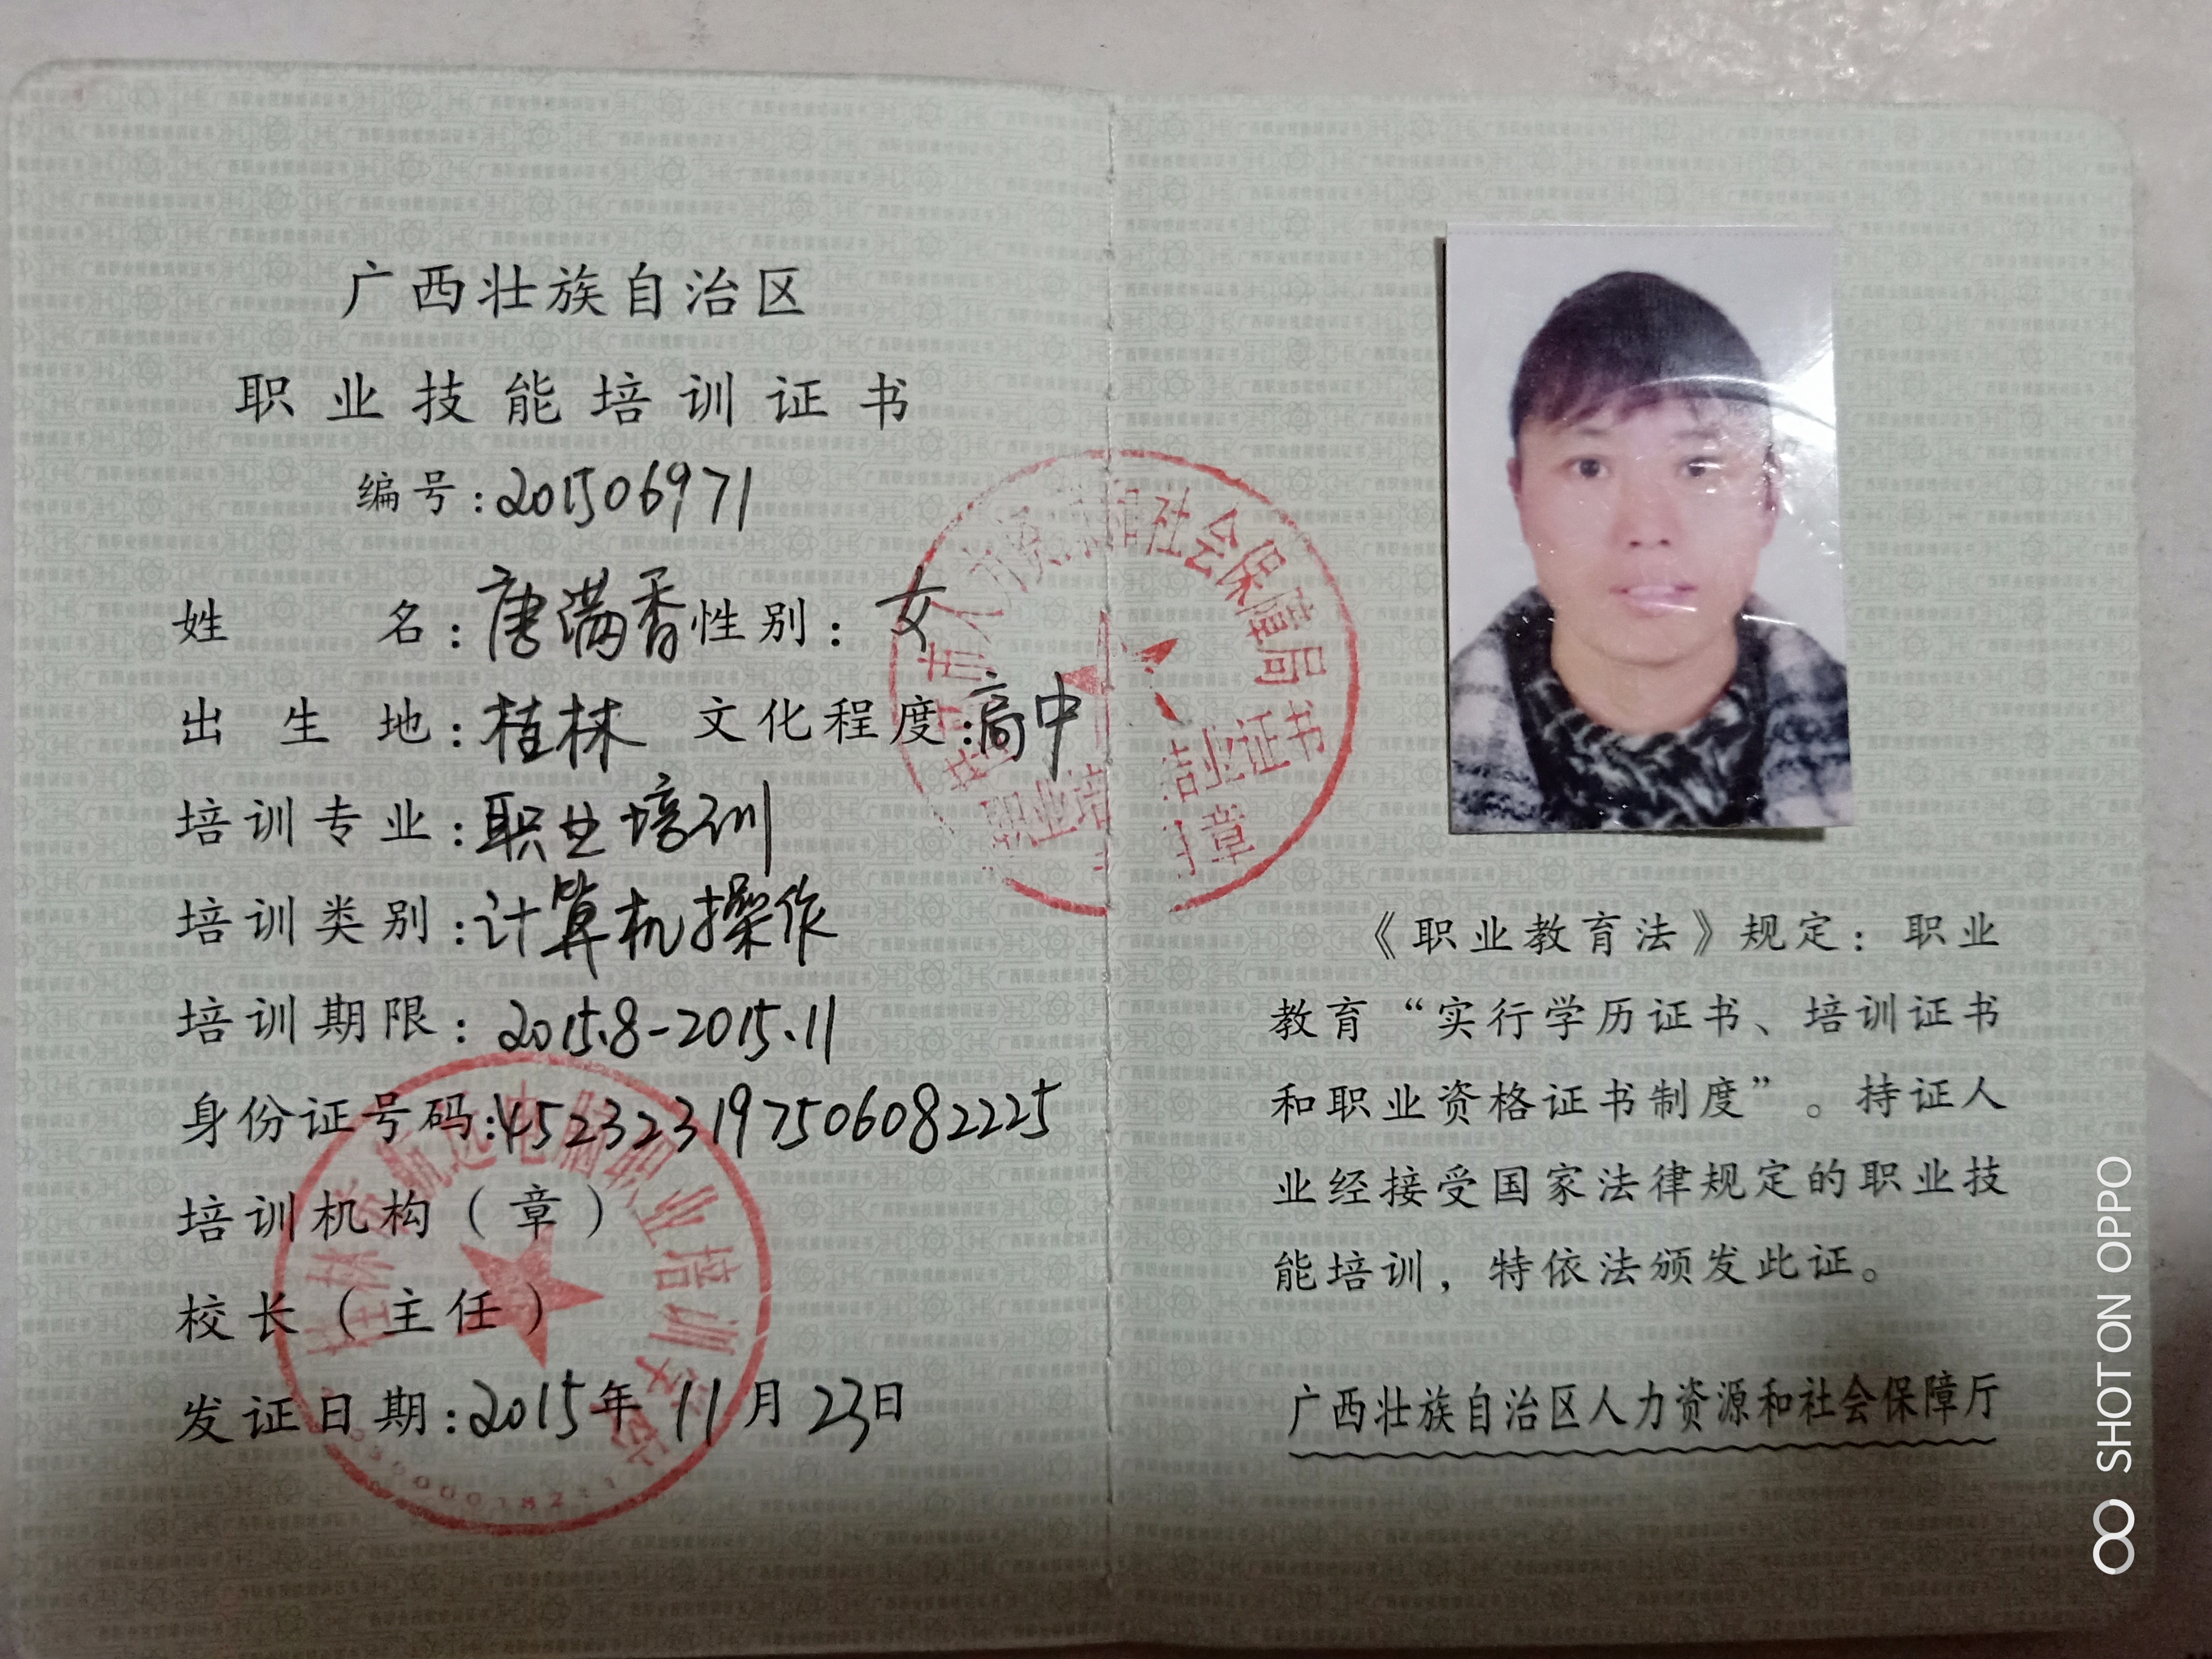 广西壮族自治区
职业技能培训证书
编号：201506971
姓名：唐满香性别：女
出生地：桂林 文化程度：高中
培训专业：职业培训
培训类别：计算机操作
培训期限：2015.8-2015.11
身份证号码：452323197506082225
培训机构（章）
校长（主任）
发证日期：2015年11月23日
社会保障局
结业证书
电脑职业培训学校
《职业教育法》规定：职业
教育“实行学历证书、培训证书
和职业资格证书制度”。持证人
业经接受国家法律规定的职业技
能培训，特依法颁发此证。
广西壮族自治区人力资源和社会保障厅
SHOT ON OPPO